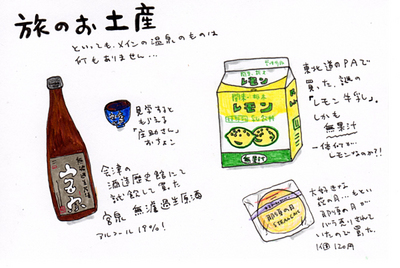 旅のお土産
といっても、メインの温泉のものは
何もありません…
見学すると
もらえる
「庄助さん」
おちょこ
会津の
酒造歴史館にて
試飲して買った
宮泉 無濾過生原酒
アルコール19%!
東北道のPAで
買った、謎の
「レモン牛乳」。
しかも
無果汁
一体何が…
レモンなのか!?
関東・栃木
レモン
関東・栃木
レモン
無果汁
大好きな
萩の月…もとい
那須の月が
バラ売りされて
いたので買った。
1個120円
那須の月